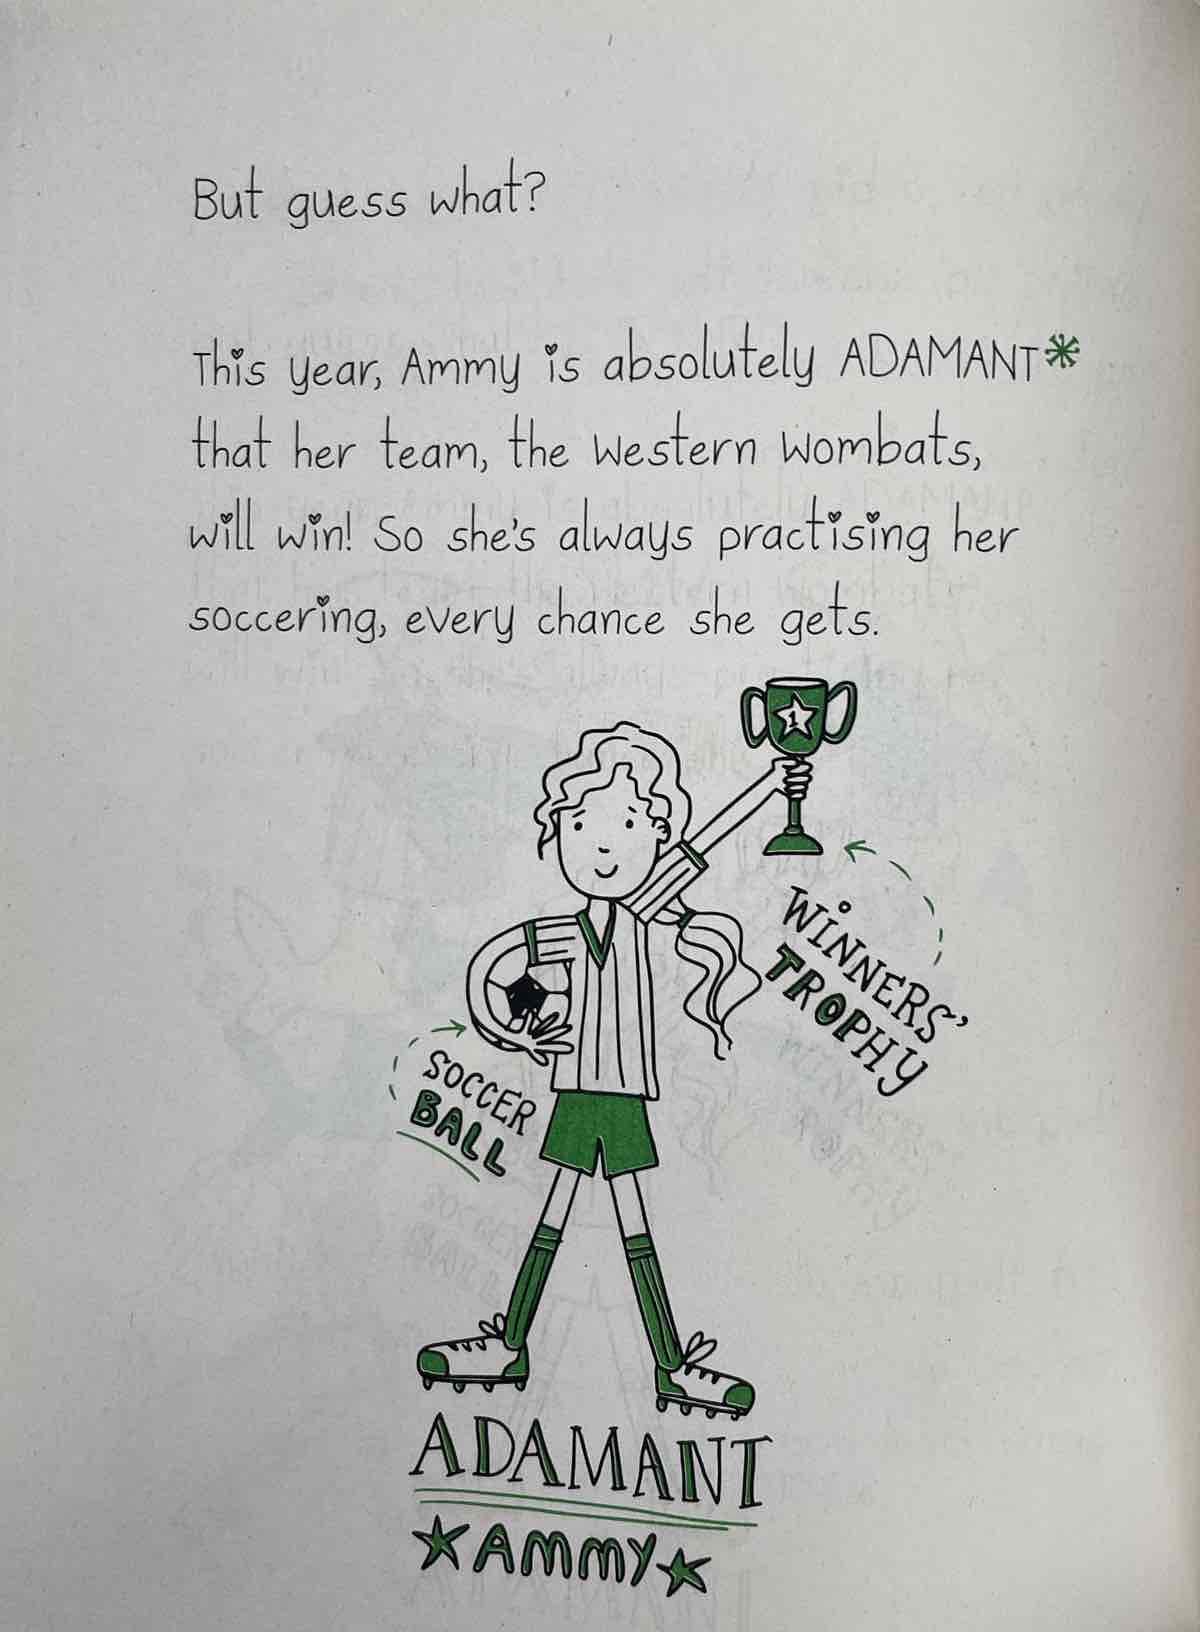 But guess what?
This year, Ammy is absolutely ADAMANT*
that her team, the Western Wombats,
will win! So she's always practising her
soccering, every chance she gets.
1
WINNERS'
TROPHY
SOCCER
BALL
ADAMANT
AMMY